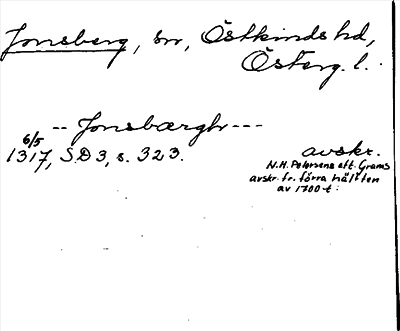 Jonsberg, sn, Östkinds hd,
Österg. l.
-- Jonsbærgh ---
6/5
1317, SD3, s. 323.
avskr.
N.H. Petersens eft. Grams
avskr. fr. förra hälften
av 1700-t.